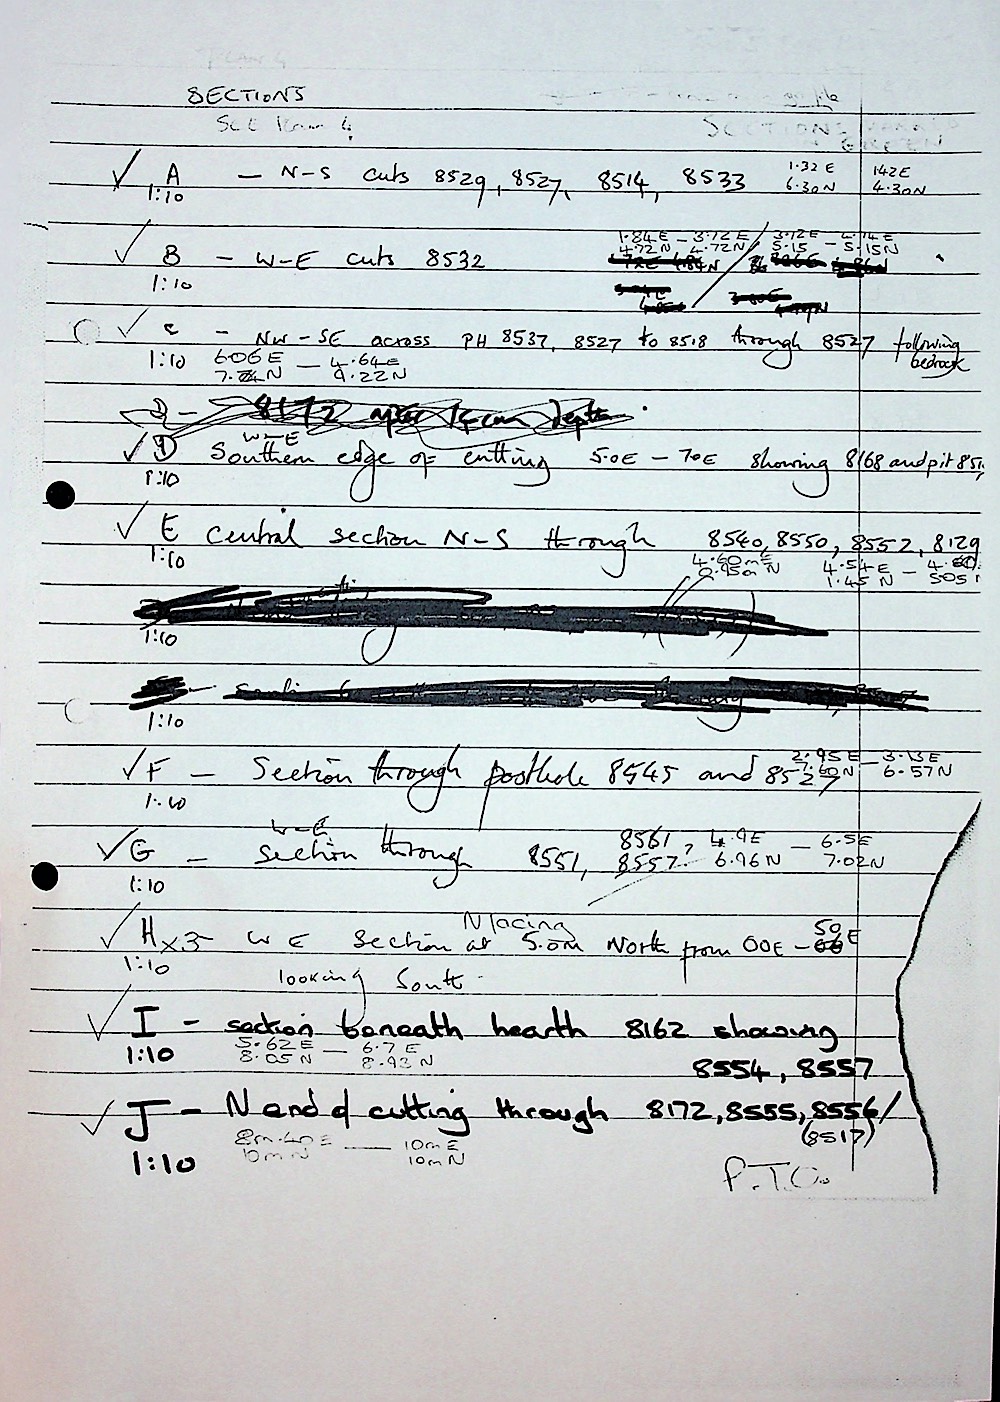 SECTIONS
SECTIONS
GREEN
✓ A – N-S cuts 8529, 8527, 8514, 8533 1.32E 142E
1:10 6.30N 4.30N
1.84E – 3.72E / 3.72E –
4.72N 4.72N 5.15 – 5.15N
✓ B – W-E cuts 8532
1:10
✓ C – NW-SE across PH 8537, 8527 to 8518 through 8527 following
bedrock
1:10 606E — 4.64E
9.22N
8172 after depth
W-E
✓ D Southern edge of cutting 5.0E – 70E showing 8168 and pit 851
1:10
✓ E central section N-S through 8540, 8550, 8552, 8129
1:10 4.60mE 4.54E –
0.95m N 1.45N – 505
1:10
1:10
✓ F – Section through posthole 8545 and 8527 2.95E – 3.13E
7.60N 6.57N
1:10
W-E
✓ G – Section through 8551, 8557? 8561, 4.9E — 6.5E
6.96N 7.02N
1:10
✓ H x3 – W E Section at 5.0m North from 00E – 50E
1:10
looking South
✓ I – section beneath hearth 8162 showing
1:10 5.62E — 6.7E
8.05N 8.93N
8554, 8557
✓ J – N end of cutting through 8172, 8555, 8556/
(8517)
1:10 8m.40E — 10mE
10mN 10mN
P.T.O.